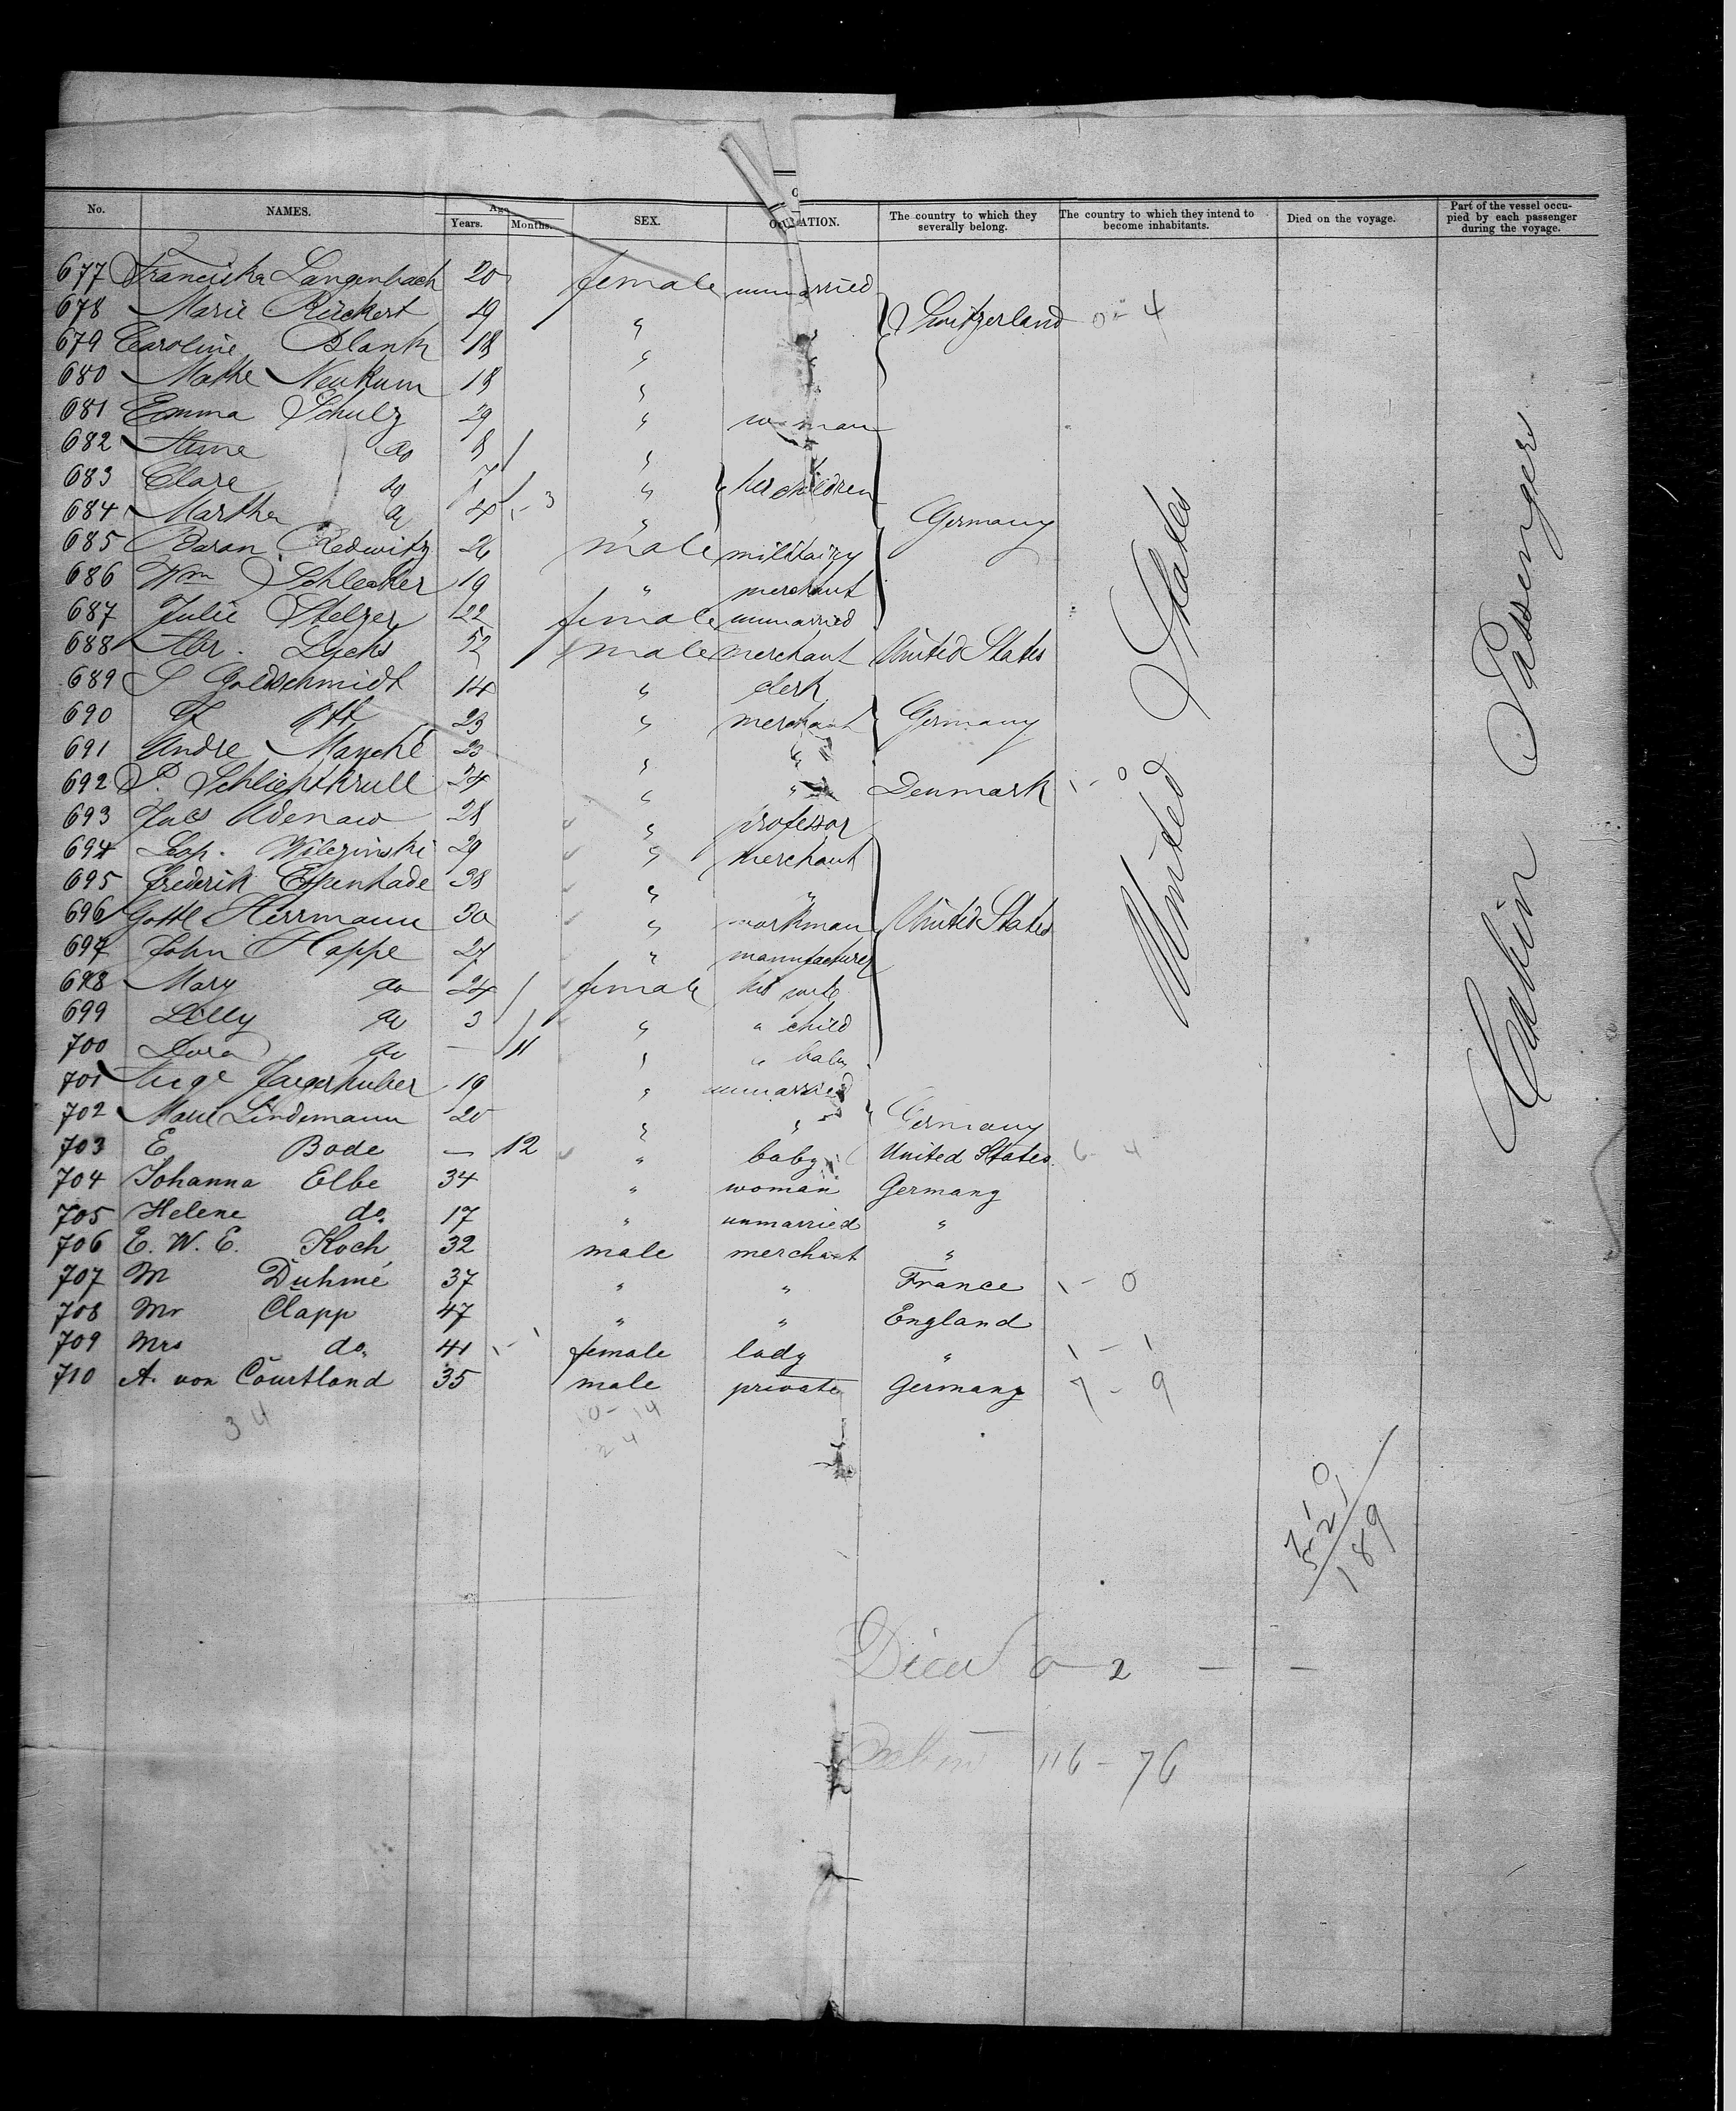 No. NAMES. Age Years. Months. SEX. OCCUPATION. The country to which they severally belong. The country to which they intend to become inhabitants. Died on the voyage. Part of the vessel occupied by each passenger during the voyage.
677 Franciska Langenbach 20 female unmarried
678 Marie Rückert 29 " " Switzerland 0 - 4
679 Caroline Blank 18 " "
680 Mathe Neukum 18 "
681 Emma Schulz 29 " woman
682 do 8 "
683 Clare do 7 " her children
684 Martha do 4 " Germany
685 Baron Redwitz 26 male military
686 Wm Schleaker 19 " merchant
687 Julie Stelzer 22 female unmarried
688 Abr. Sachs 52 male merchant United States
689 S Goldschmidt 14 " clerk
690 Ott 23 " merchant Germany
691 Andre Manché 23 " "
692 P. Schliepkrull 24 " " Denmark 1 - 0
693 Jules Adenaw 28 " professor
694 Leop. Wilczinski 29 " merchant
695 Frederik Eppenhade 28 " "
696 Gottl Herrmann 30 " workman United States
697 John Happe 27 " manufacturer
698 Mary do 24 female his wife
699 Lilly do 3 " " child
700 Dora do — 11 " " baby
701 Jaegerhuber 19 " unmarried
702 Marie Lindemann 20 " " Germany
703 E Bode — 12 " baby United States 6 - 4
704 Johanna Elbe 34 " woman Germany
705 Helene do. 17 " unmarried "
706 E. W. E. Koch 32 male merchant "
707 M Duhmé 37 " " France 1 - 0
708 Mr Clapp 47 " " England
709 Mrs do. 41 female lady " 1 - 1
710 A. von Courtland 35 male private Germany 7 - 9
United States
Cabin Passengers
34
10 - 14
24
189
Died 0 - 2 — —
116 - 76